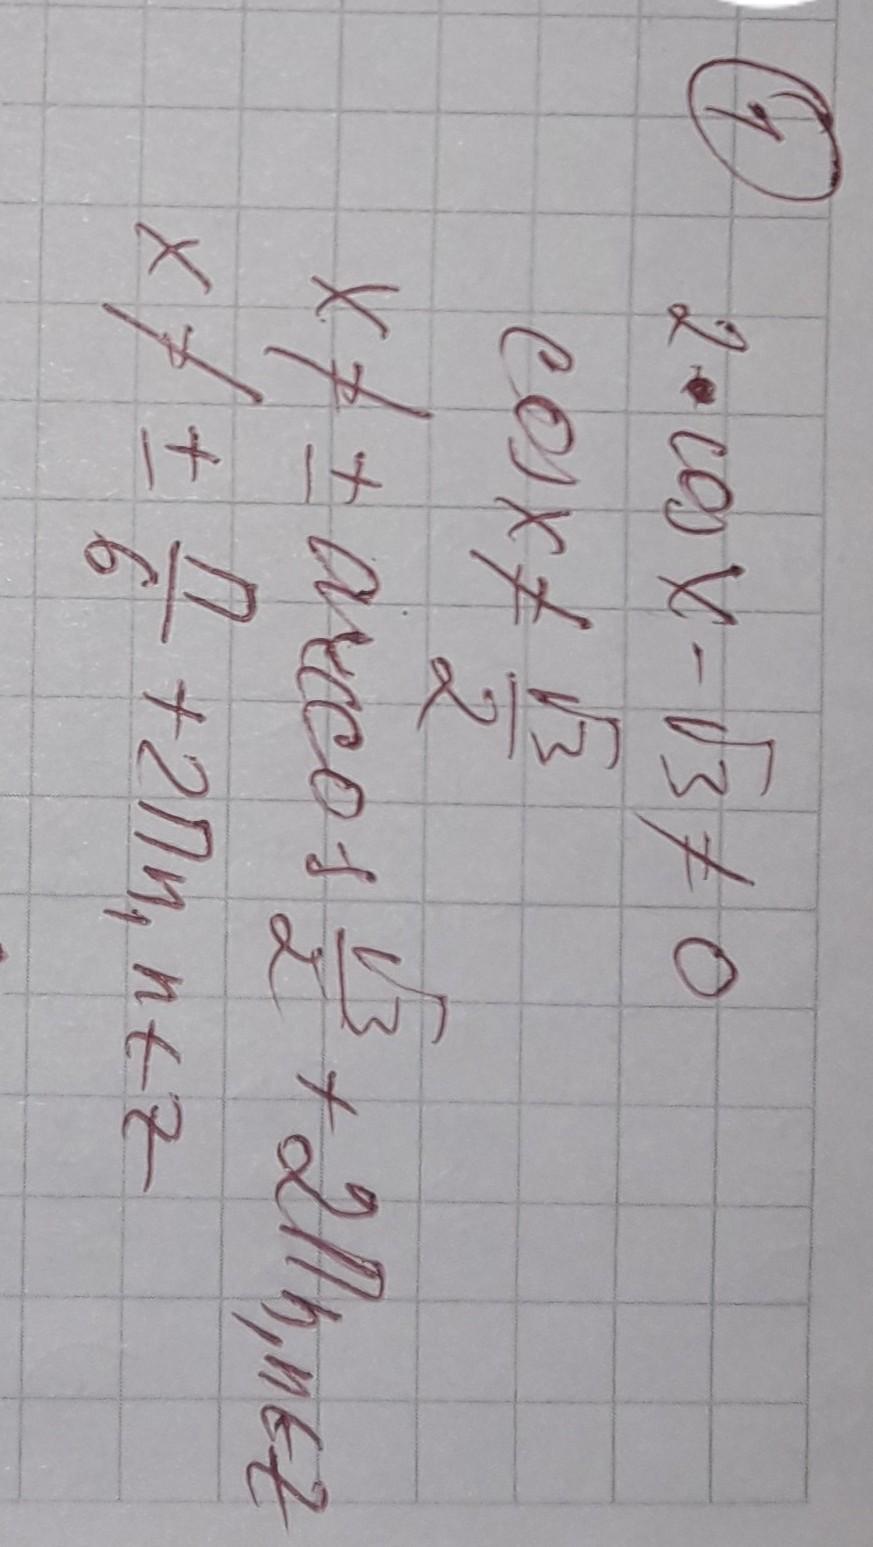 ①
2·cos x - √3 ≠ 0
cos x ≠ √3/2
x ≠ ± arccos √3/2 + 2πn, n∈Z
x ≠ ± π/6 + 2πn, n∈Z